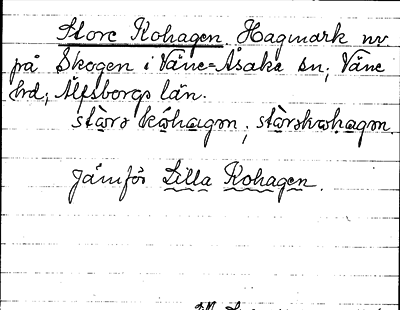 Store Kohagen. Hagmark nv
på Skogen i Väne-Åsaka sn, Väne
hd, Älfsborgs län.
stɷ̀rə kóhagm, stɷ̀rəkɷhagm.
Jämför Lilla Kohagen.